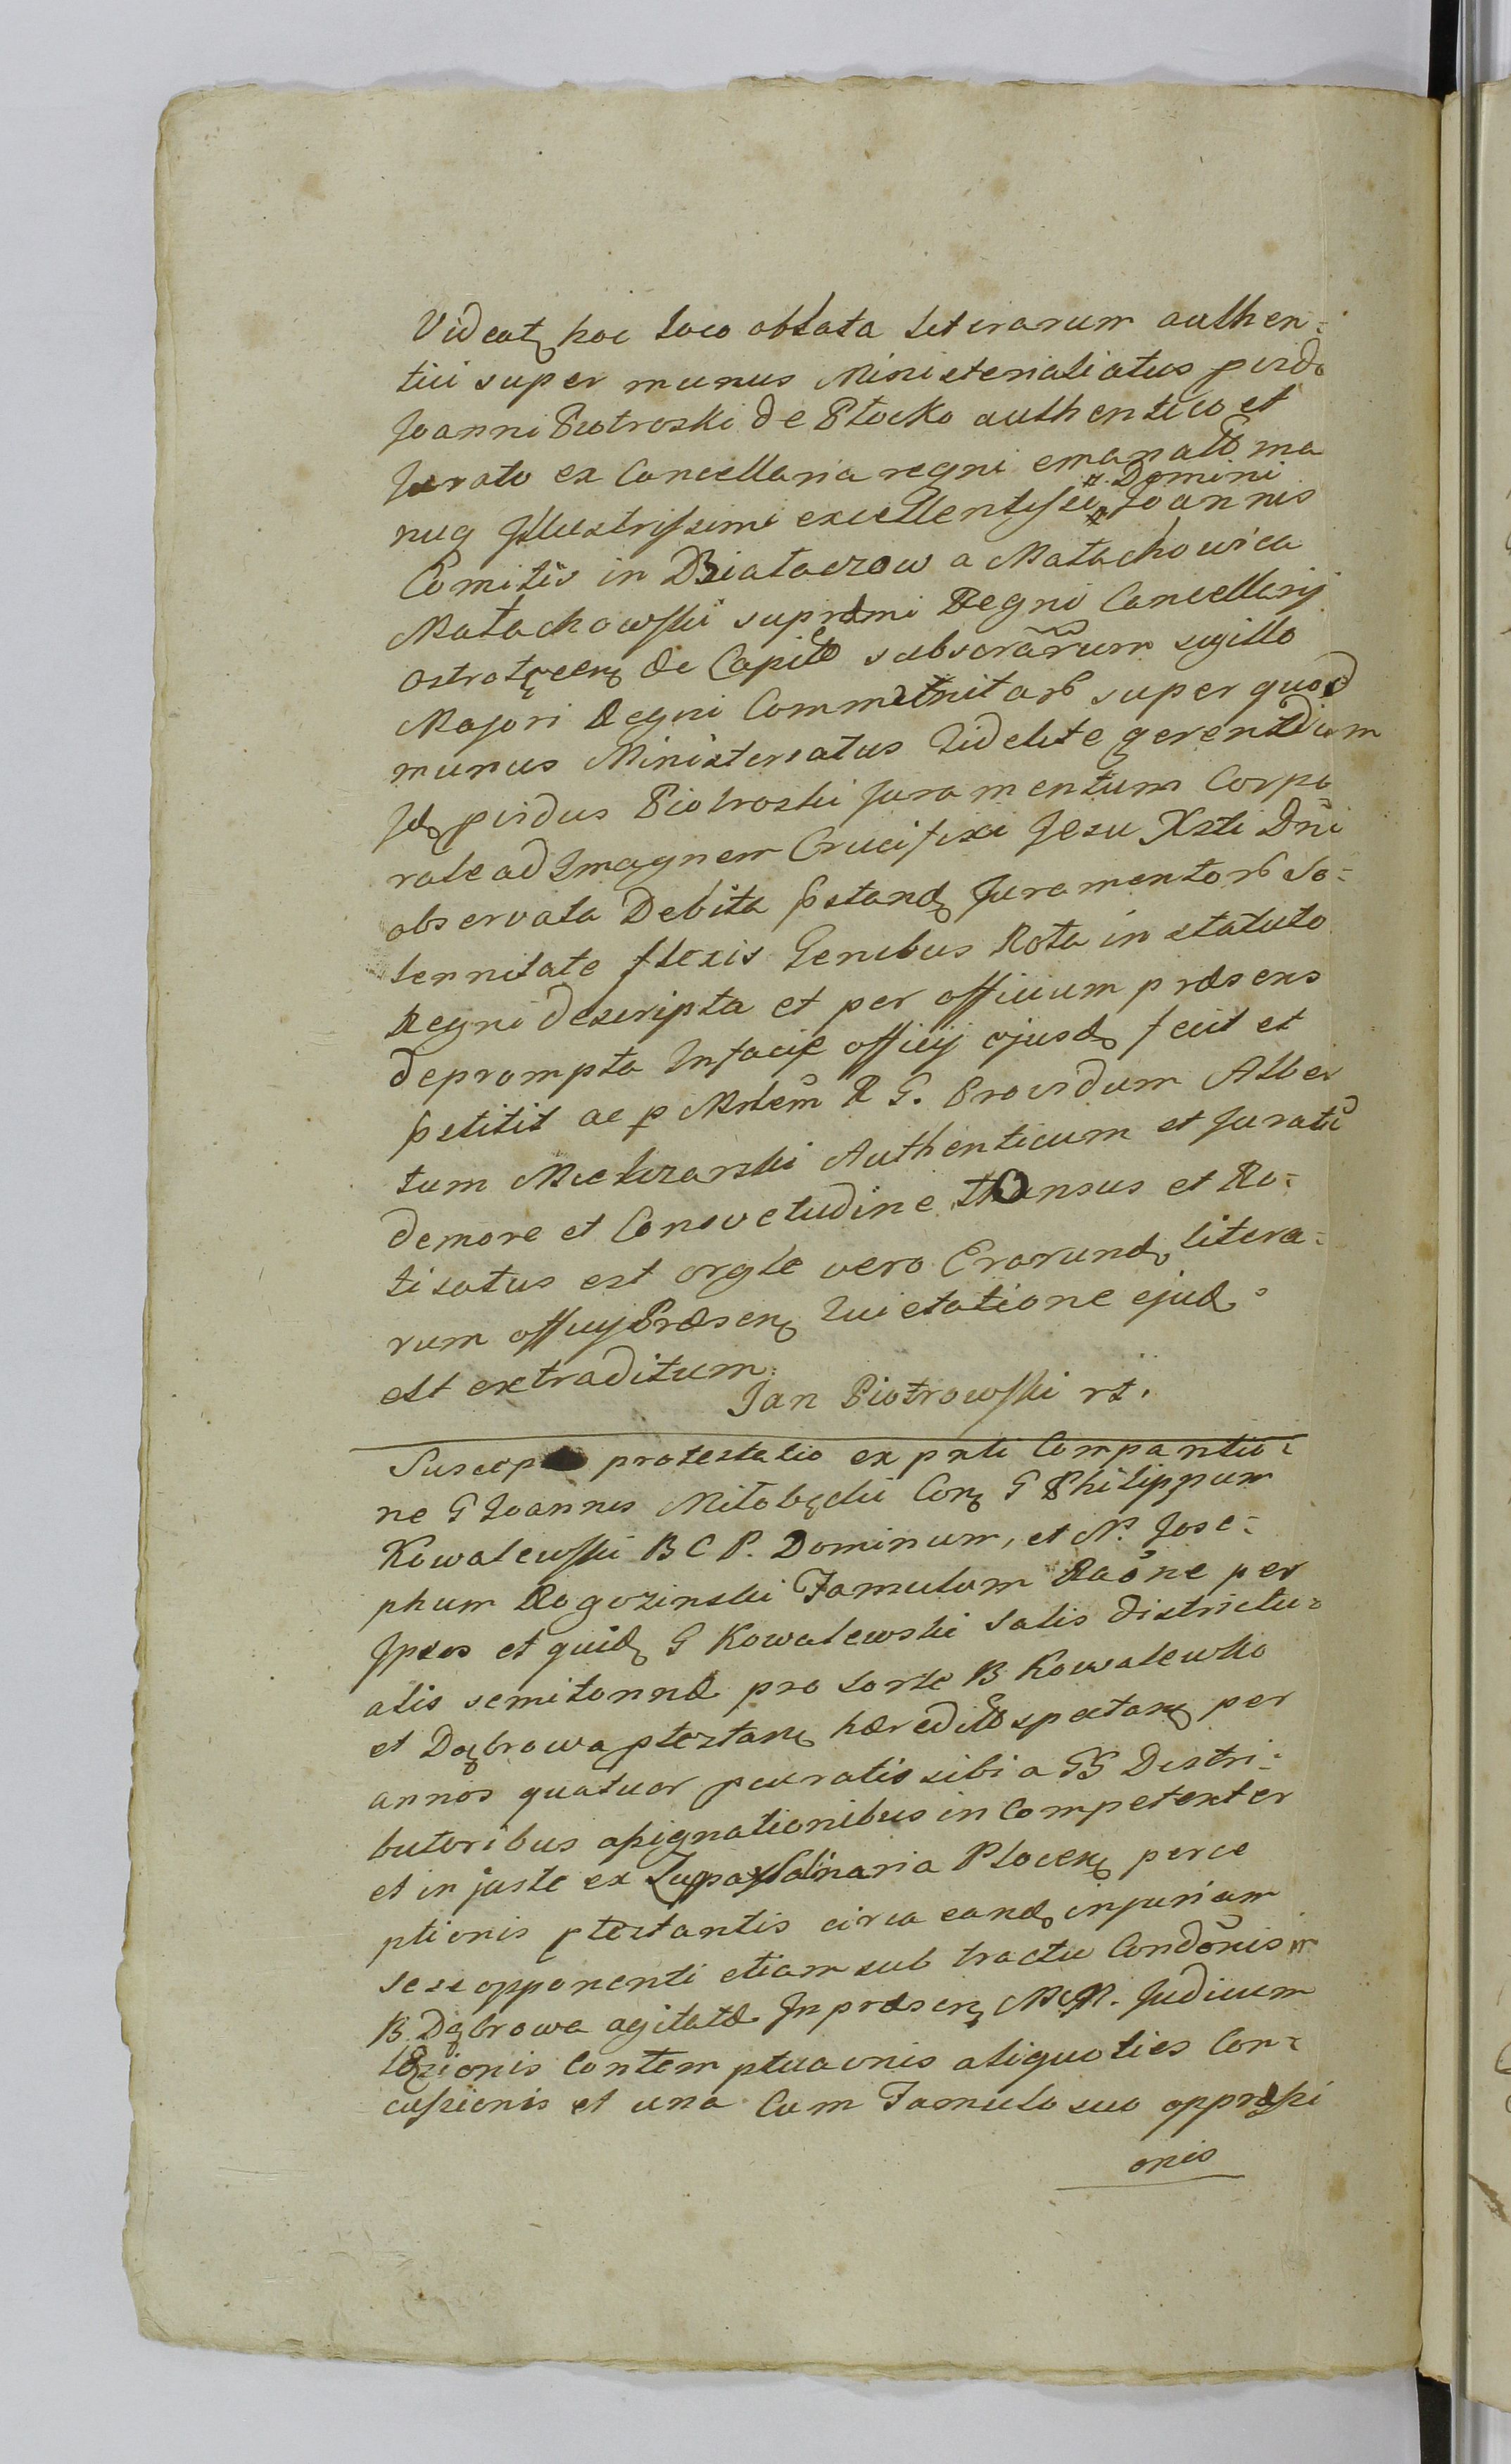 Videat hoc loco oblata literarum authen:
tici super munus Ministerialiatus pvdo
Joanni Piotroski de Plocko authentico et
Jurato ex Cancellaria regni emanat ma
nuq Jllustrissimi excellentissi # Joannis
#. Domini
Comitis in Białaczow a Małachowica
Małachowski supremi Regni Cancellarij
Ostrołęcen de Capite subscrarum sigillo
Majori Regni Communitarb super quod
munus Ministeriatus fidelite gerendum
Jd pvdus Piotroski Juramentum Corpo
rale ad Jmagnem Crucifixi Jesu Xsti Dni
observata Debita pstand Juramentorb So:
lennitate flexis Genibus Rota in statuto
Regni descripta et per officium præsens
deprompta Jnfacie officij ejusd fecit et
petitit ac p Mrlem R G. Providum Alber
tum Mielczarski Authenticum et Juratu
demore et Consvetudine thonsus et Ro:
tisatus est orgle vero Erarund litera:
rum officij Præsen Quietatione ejud
est extraditum.
Jan Piotrowski rż.
Suscep protestatio ex prti Compantio:
ne G Joannis Miłobędzki Con G Philippum
Kowalewski B C P. Dominum, et N. Jose:
phum Rogozinski Famulum Raone per
Jpsos et quid G Kowalewski Salis districtu:
alis semitonnæ pro sorte B Kowalewko
et Dąbrowa ptestan hæredite spectan per
annos quatuor pcuratis sibi a GG Distri:
butoribus assignationibus in Competenter
et injuste ex Zupa Salinaria Plocen perce
ptionis ptestantis circa eand injuriam
sese opponenti etiam sub tractu Condonis in
B. Dąbrowa agitatæ Jn præsen M R. Judicum
Læsionis Contemptuaonis aliquoties Con:
cussionis et una Cum Famulo suo oppressi
onis